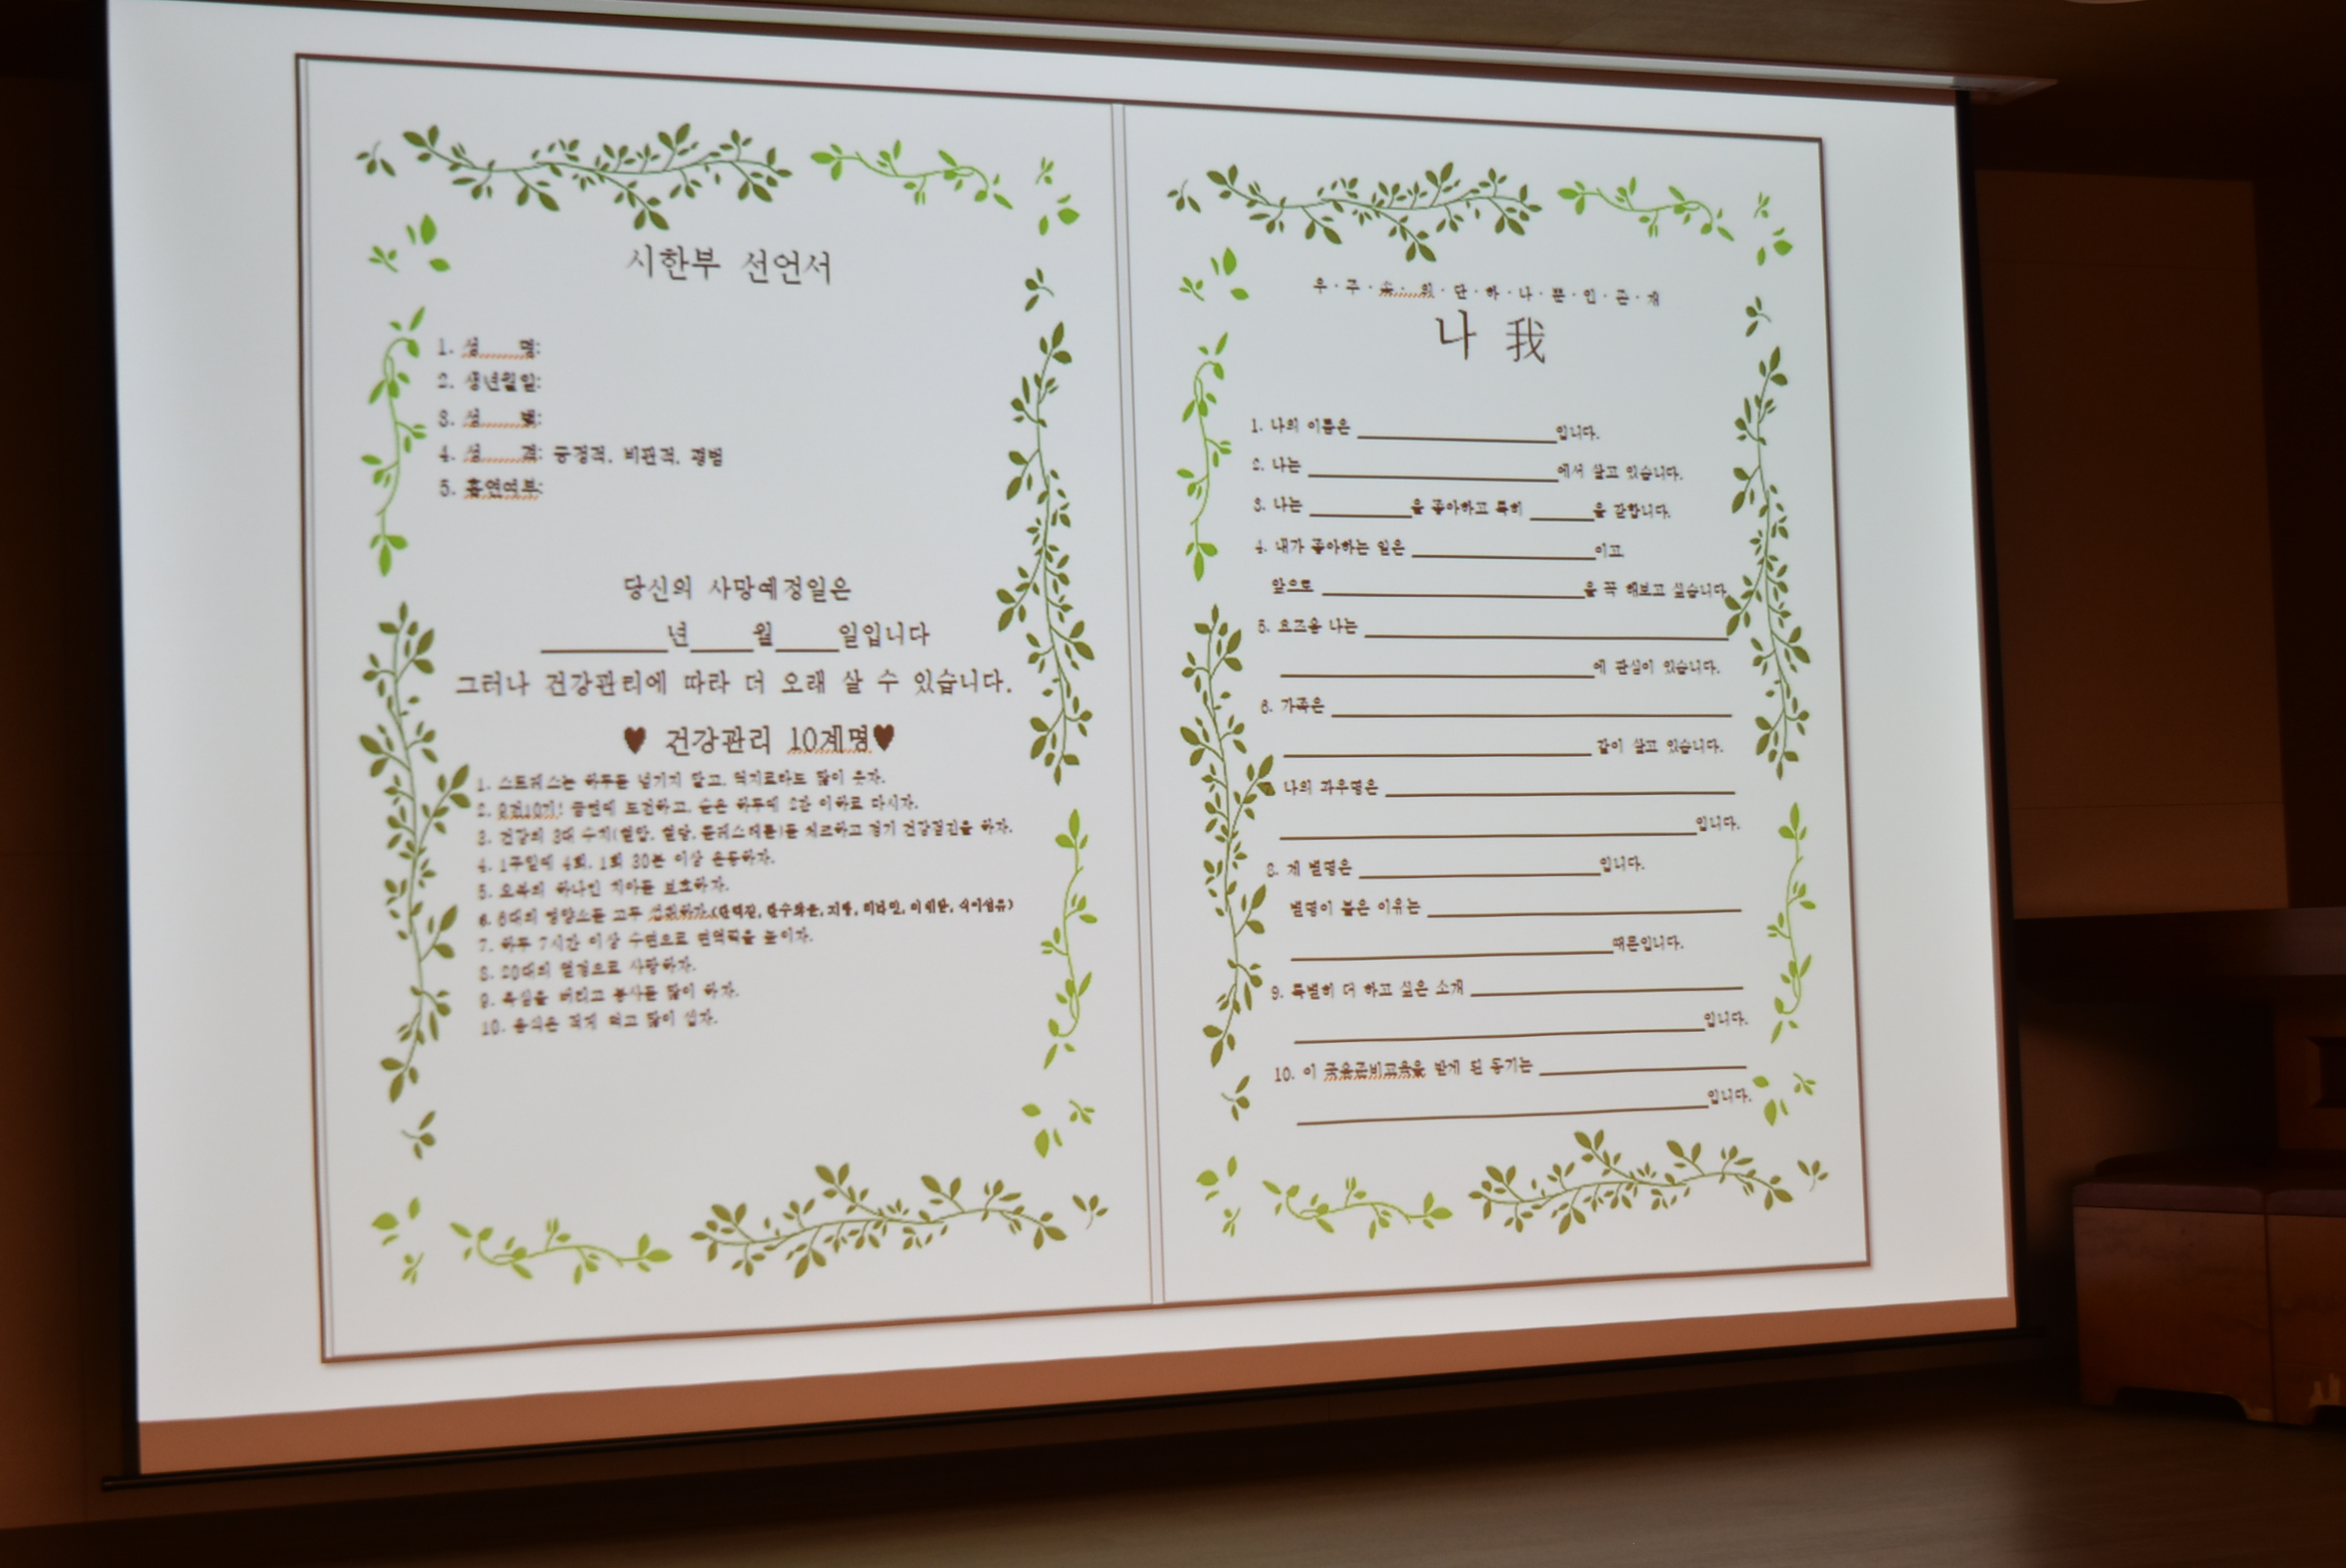 시한부 선언서
1. 성 명:
2. 생년월일:
3. 성 별:
4. 성 격: 긍정적, 비판적, 평범
5. 흡연여부:
당신의 사망예정일은
년 월 일입니다
그러나 건강관리에 따라 더 오래 살 수 있습니다.
♥ 건강관리 10계명♥
1. 스트레스는 하루를 넘기지 말고, 억지로라도 많이 웃자.
2. 9전10기! 금연에 도전하고, 술은 하루에 2잔 이하로 마시자.
3. 건강의 3대 수치(혈압, 혈당, 콜레스테롤)를 체크하고 정기 건강검진을 하자.
4. 1주일에 4회, 1회 30분 이상 운동하자.
5. 오복의 하나인 치아를 보호하자.
6. 6대의 영양소를 고루 섭취하자.(단백질, 탄수화물, 지방, 비타민, 미네랄, 식이섬유)
7. 하루 7시간 이상 수면으로 면역력을 높이자.
8. 20대의 열정으로 사랑하자.
9. 욕심을 버리고 봉사를 많이 하자.
10. 음식은 적게 먹고 많이 씹자.
우·주·속·의·단·하·나·뿐·인·존·재
나 我
1. 나의 이름은 입니다.
2. 나는 에서 살고 있습니다.
3. 나는 을 좋아하고 특히 을 잘합니다.
4. 내가 좋아하는 일은 이고
앞으로 을 꼭 해보고 싶습니다.
5. 요즈음 나는
에 관심이 있습니다.
6. 가족은
같이 살고 있습니다.
나의 좌우명은
입니다.
8. 제 별명은 입니다.
별명이 붙은 이유는
때문입니다.
9. 특별히 더 하고 싶은 소개
입니다.
10. 이 죽음준비교육을 받게 된 동기는
입니다.